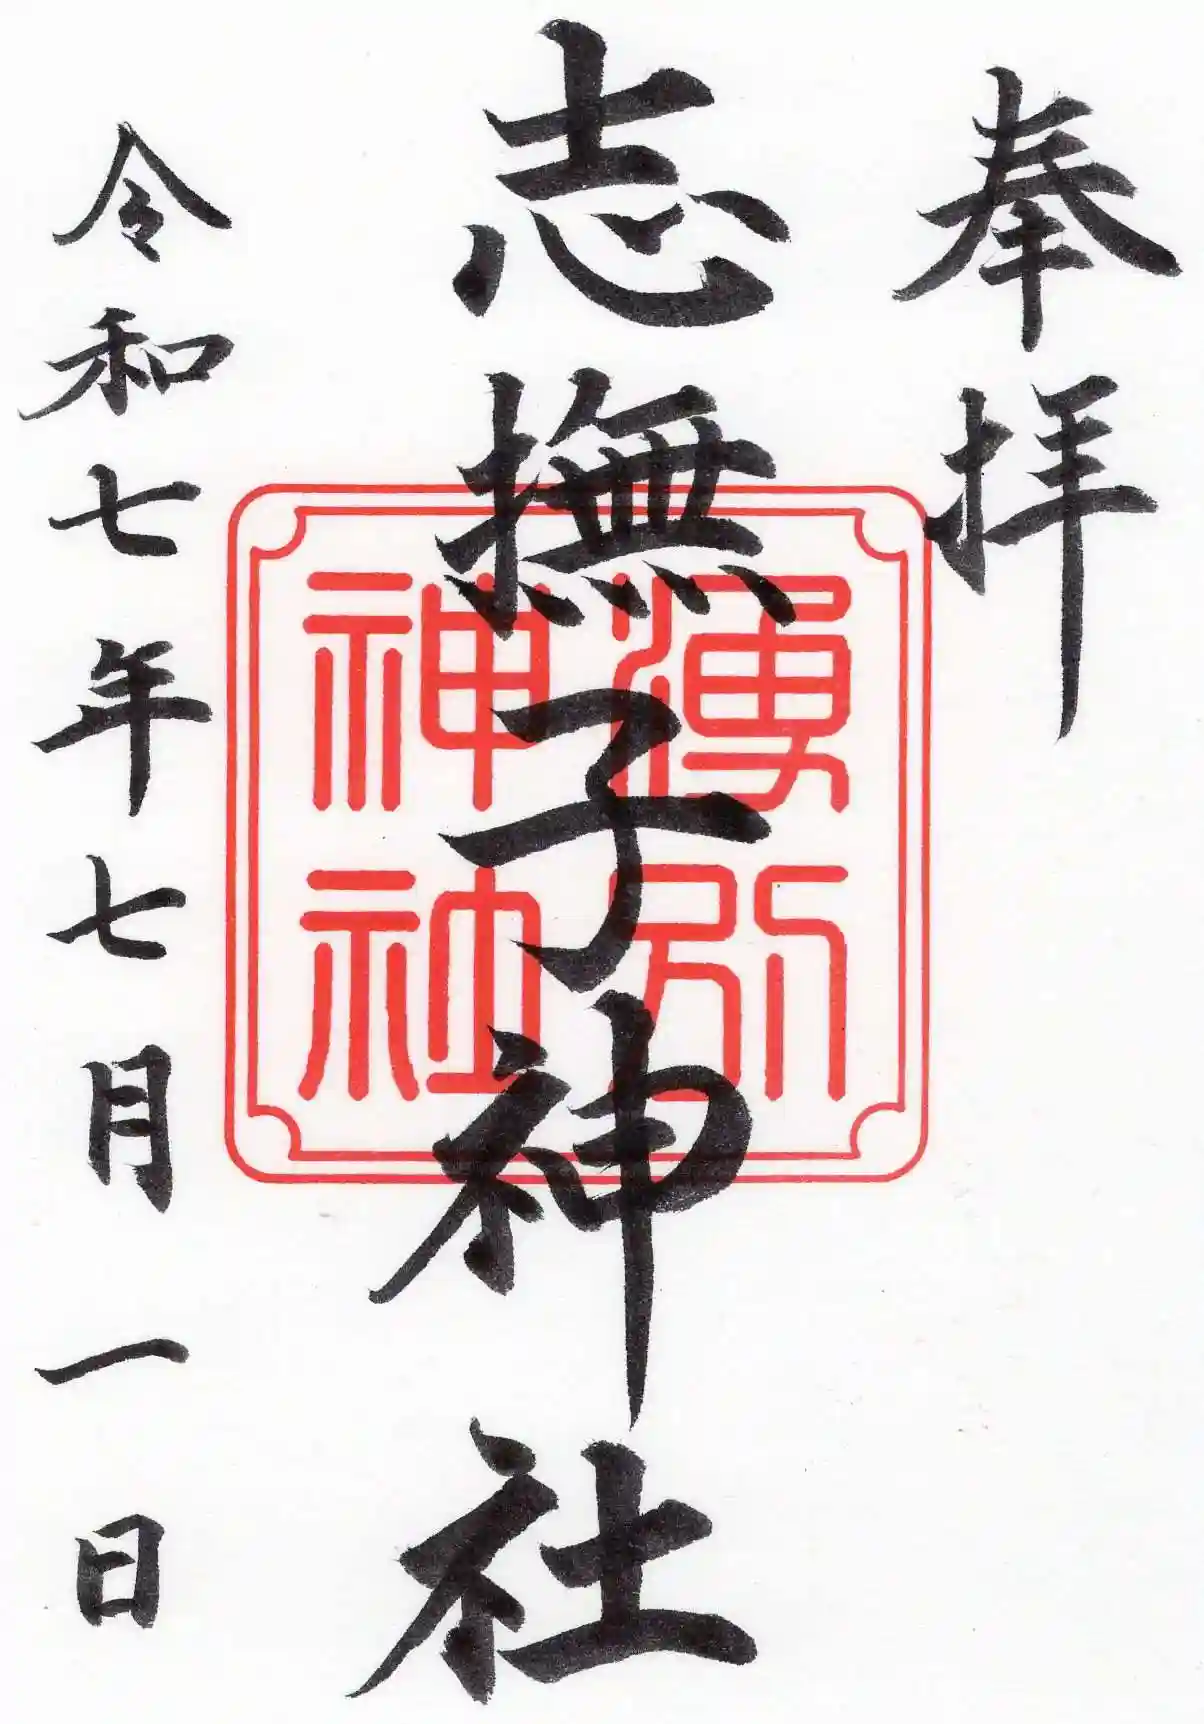 奉拝
志撫子神社
湧別神社
令和七年七月一日